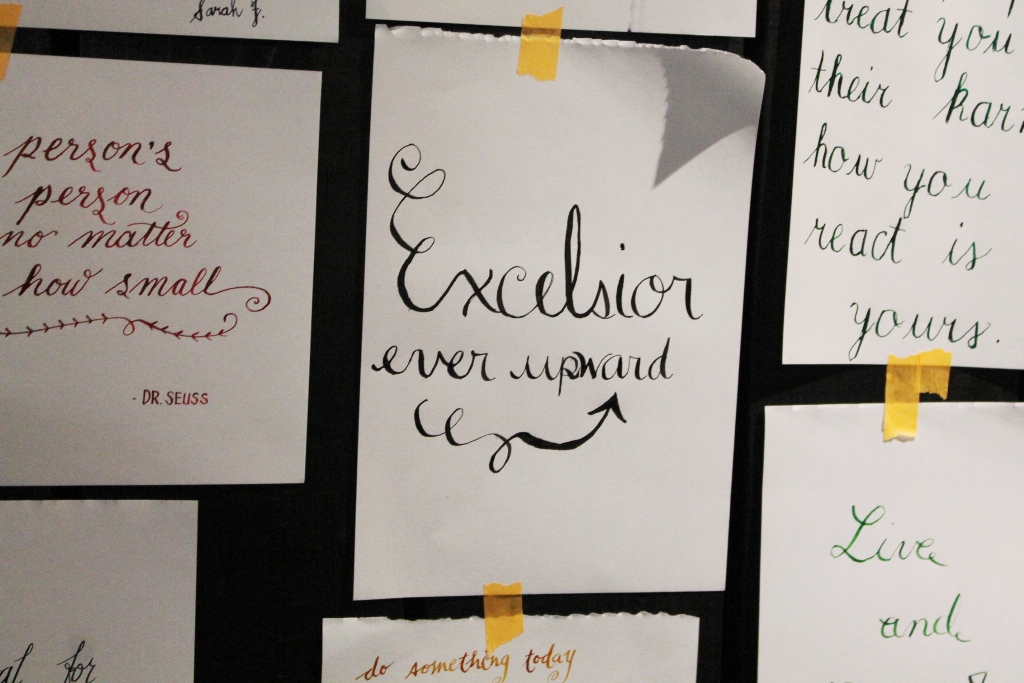 Sarah J.
person's
person
no matter
how small
- DR. SEUSS
for
Excelsior
ever upward
do something today
treat you
their
how you
react is
yours.
Live
and